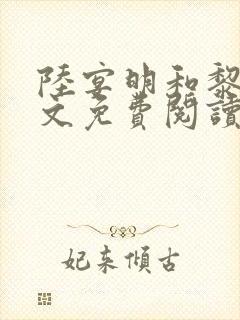 陸宴明和黎
文免費閱讀
妃来傾古